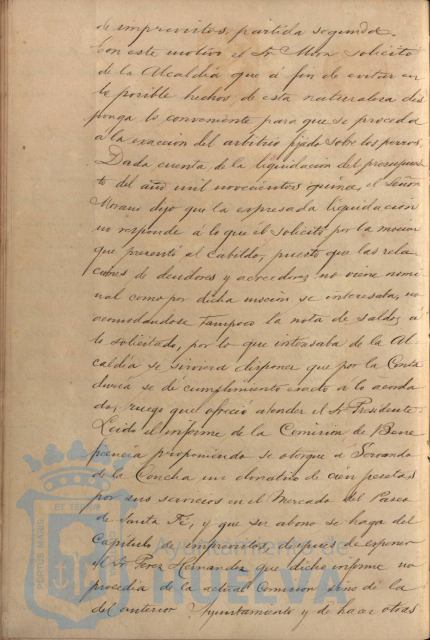 de imprevistos, partida segunda.
Con este motivo el Sr. Mora solicitó
de la Alcaldía que á fin de evitar en
lo posible hechos de esta naturaleza dis
ponga lo conveniente para que se proceda
a la exacción del arbitrio fijado sobre los perros.
Dada cuenta de la liquidación del presupues
to del año mil novecientos quince, el Señor
Moreno dijo que la expresada liquidación
no responde á lo que él solicitó por la moción
que presentó al Cabildo, puesto que las rela
ciones de deudores y acreedores no viene nomi
nal como por dicha moción se interesaba, no
acomodándose tampoco la nota de saldos á
lo solicitado, por lo que interesaba de la Al
caldía se sirviera disponer que por la Conta
duría se dé cumplimiento exacto a lo acorda
do, ruego que ofreció atender el Sr. Presidente.
Leído el informe de la Comisión de Bene
ficencia proponiendo se otorgue á Servando
de la Concha un donativo de cien pesetas
por sus servicios en el Mercado del Paseo
de Santa Fé, y que su abono se haga del
Capítulo de imprevistos, después de exponer
el Sr. Perez Hernandez que dicho informe no
procedía de la actual Comisión sino de la
del anterior Ayuntamiento y de hacer otras
PORTUS MARIS ET TERRAE
Ayuntamiento de
HUELVA